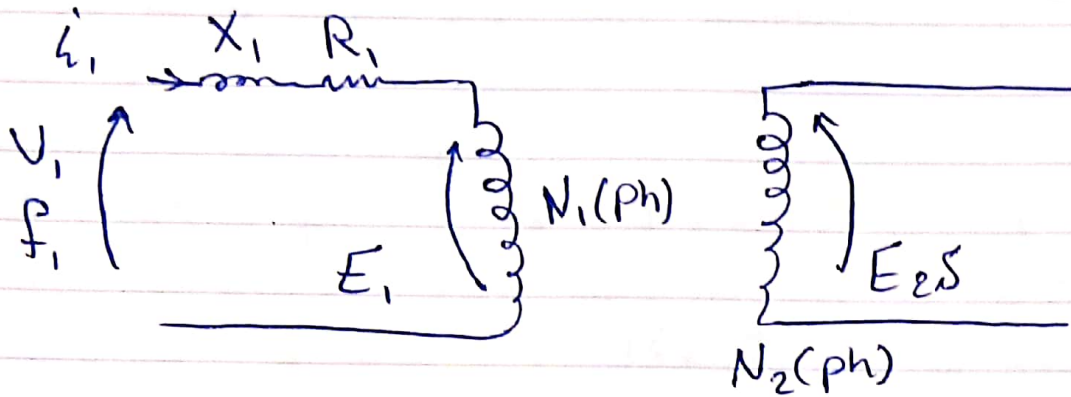 i₁ X₁ R₁
V₁
f₁
E₁
N₁(ph)
E₂s
N₂(ph)